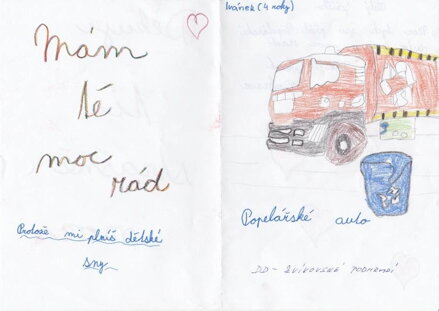 Mám
tě
moc
rád
Protože mi plníš dětské
sny
Ivánek (4 roky)
Popelářské auto
DD - ZVÍKOVSKÉ PODHRADÍ